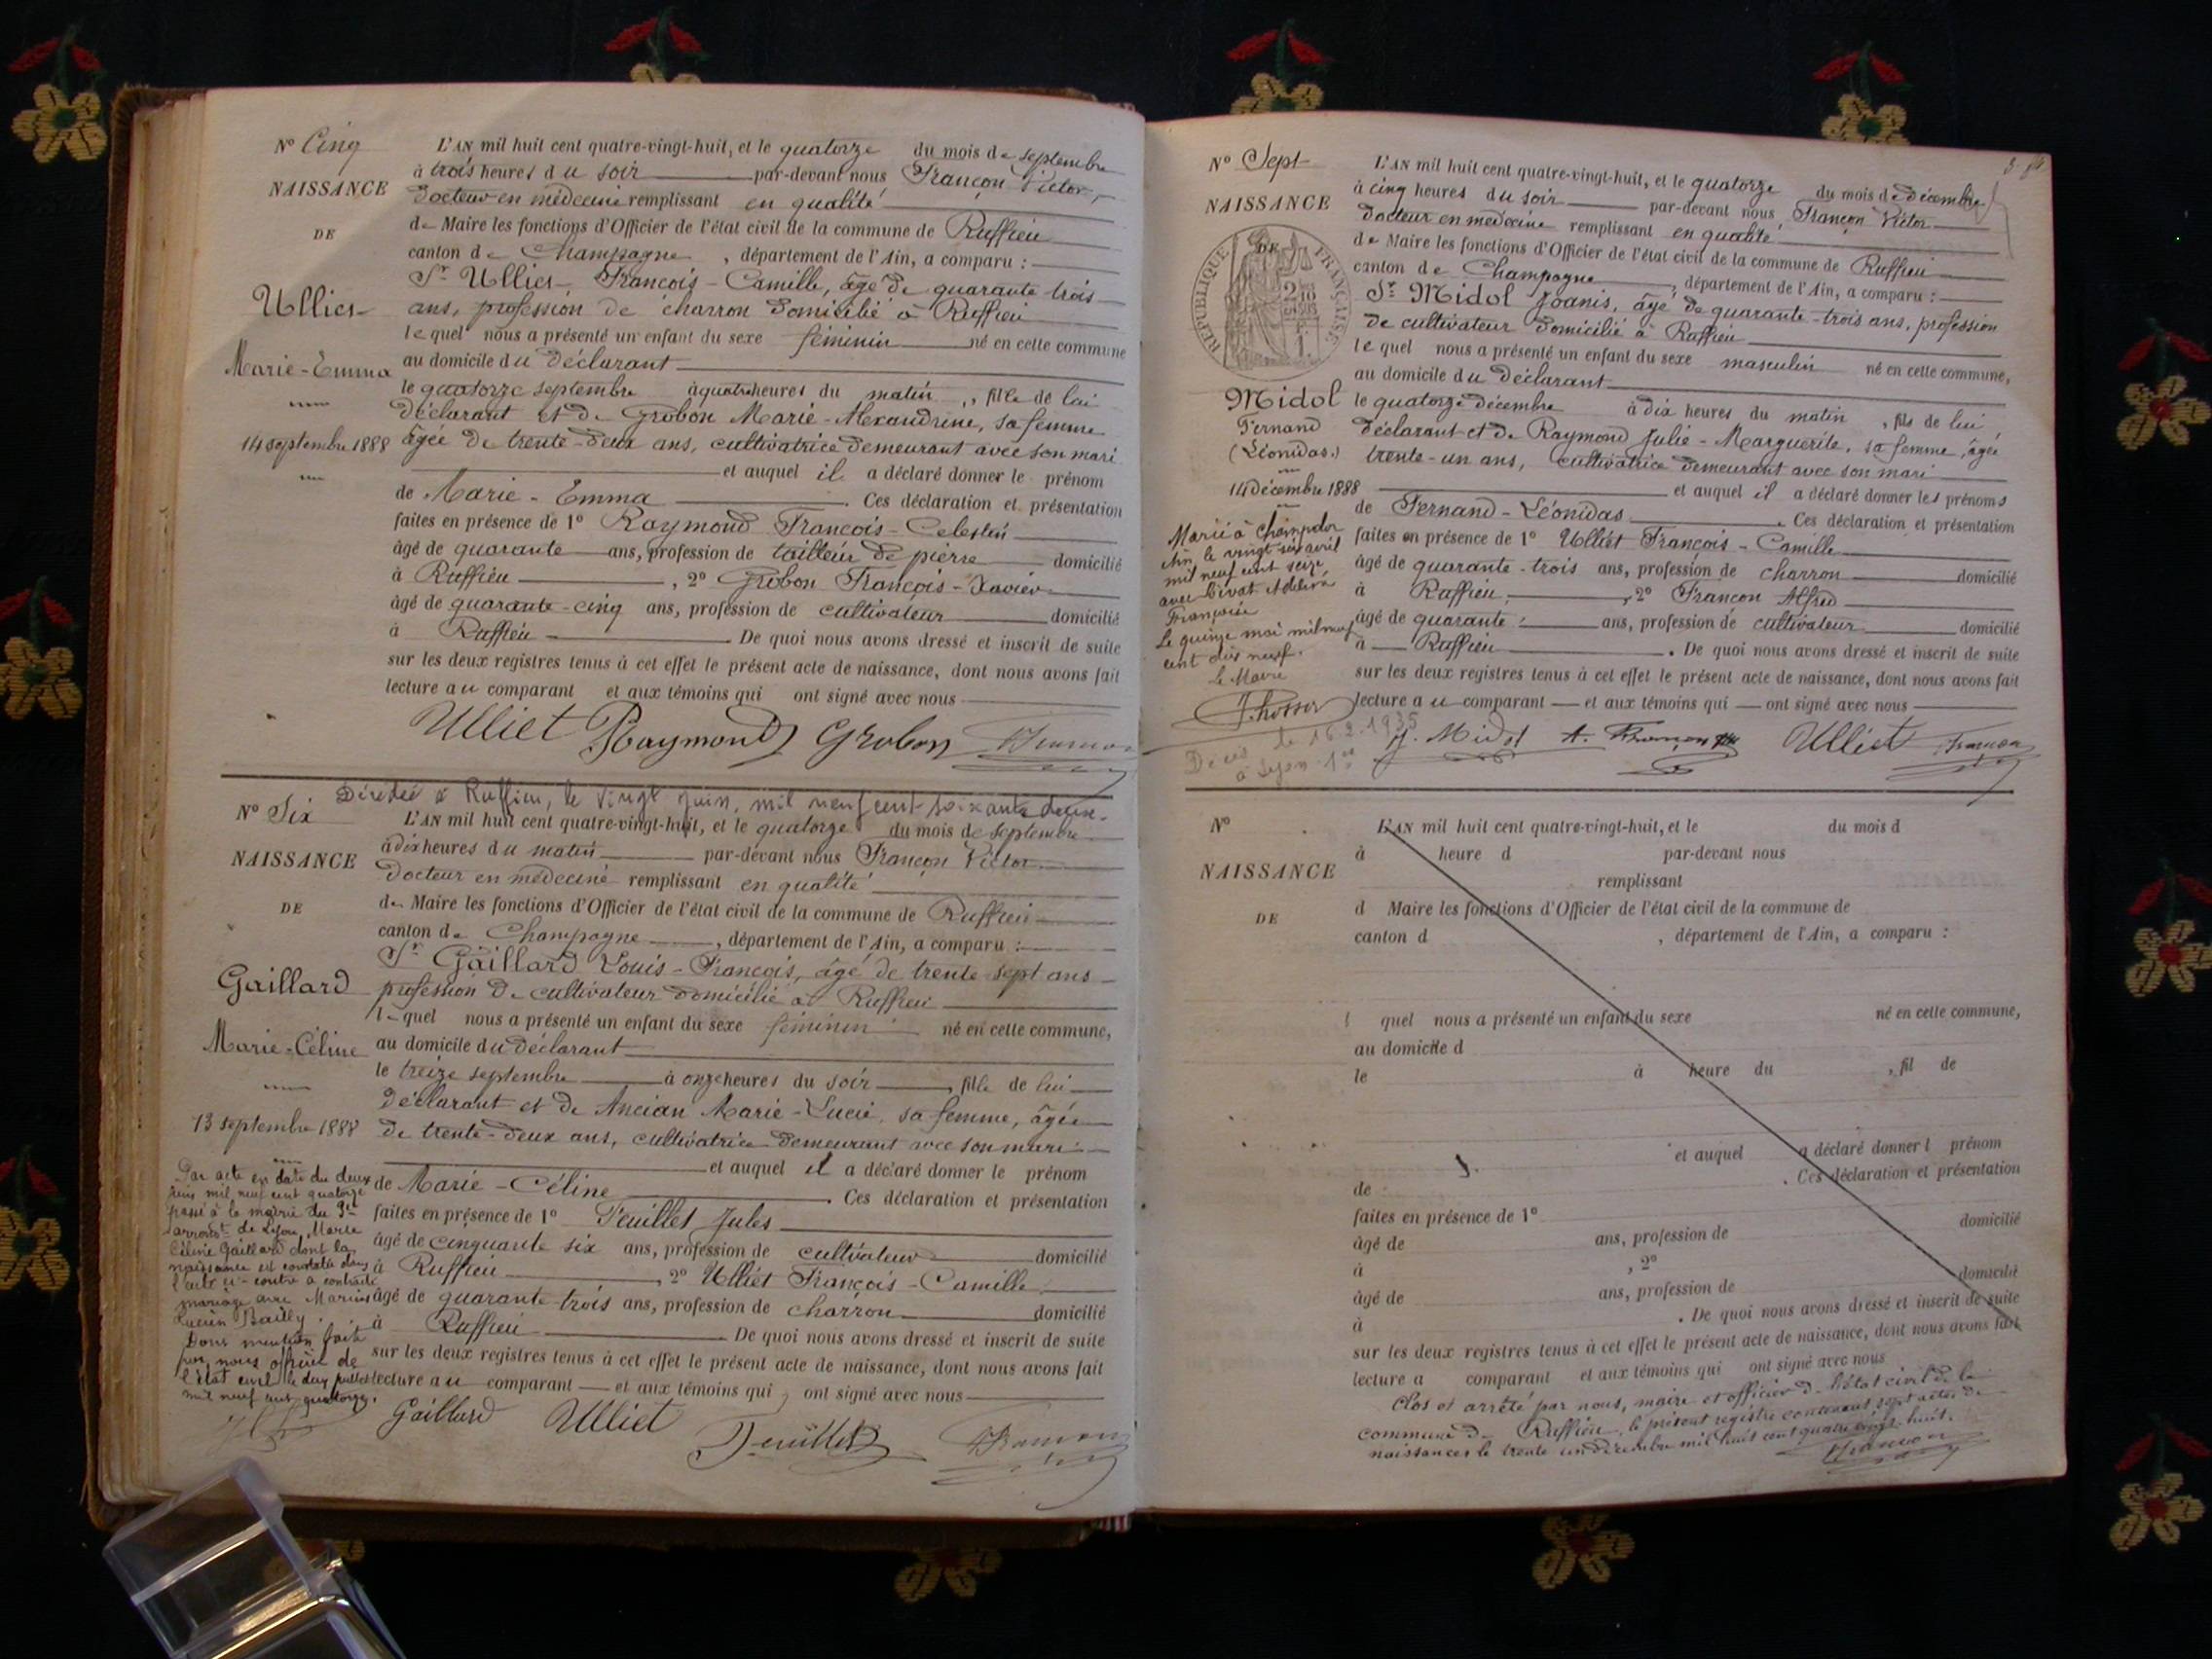 Nº Cinq
NAISSANCE
DE
Ulliet
Marie-Emma
14 septembre 1888
L'AN mil huit cent quatre-vingt-huit, et le quatorze du mois de septembre
à trois heures du soir par-devant nous Françon Victor,
docteur en médecine remplissant en qualité
de Maire les fonctions d'Officier de l'état civil de la commune de Ruffieu
canton de Champagne, département de l'Ain, a comparu :
Sr Ulliet François-Camille, âgé de quarante trois
ans, profession de charron domicilié à Ruffieu
lequel nous a présenté un enfant du sexe féminin né en cette commune
au domicile du déclarant
le quatorze septembre à quatre heures du matin, fille de lui
déclarant et de Grobon Marie-Alexandrine, sa femme
âgée de trente-deux ans, cultivatrice demeurant avec son mari
et auquel il a déclaré donner le prénom
de Marie-Emma. Ces déclaration et présentation
faites en présence de 1º Raymond François-Celestin
âgé de quarante ans, profession de tailleur de pierre domicilié
à Ruffieu, 2º Grobon François-Xavier
âgé de quarante-cinq ans, profession de cultivateur domicilié
à Ruffieu. De quoi nous avons dressé et inscrit de suite
sur les deux registres tenus à cet effet le présent acte de naissance, dont nous avons fait
lecture au comparant et aux témoins qui ont signé avec nous
Ulliet Raymond Grobon Françon
Décédée à Ruffieu, le vingt juin, mil neuf cent soixante deux.
Nº Six
NAISSANCE
DE
Gaillard
Marie-Céline
13 septembre 1888
Par acte en date du deux
juin mil neuf cent quatorze
passé à la mairie du 3e
arrondt de Lyon, Marie
Céline Gaillard dont la
naissance est constatée dans
l'acte ci-contre a contracté
mariage avec Marius
Lucien Bailly.
Dont mention faite
par nous officier de
l'état civil le dix juillet
mil neuf cent quatorze.
L'AN mil huit cent quatre-vingt-huit, et le quatorze du mois de septembre
à dix heures du matin par-devant nous Françon Victor
docteur en médecine remplissant en qualité
de Maire les fonctions d'Officier de l'état civil de la commune de Ruffieu
canton de Champagne, département de l'Ain, a comparu :
Sr Gaillard Louis-François, âgé de trente sept ans
profession de cultivateur domicilié à Ruffieu
lequel nous a présenté un enfant du sexe féminin né en cette commune,
au domicile du déclarant
le treize septembre à onze heures du soir, fille de lui
déclarant et de Ancian Marie-Lucie, sa femme, âgée
de trente-deux ans, cultivatrice demeurant avec son mari
et auquel il a déclaré donner le prénom
de Marie-Céline. Ces déclaration et présentation
faites en présence de 1º Feuillet Jules
âgé de cinquante six ans, profession de cultivateur domicilié
à Ruffieu, 2º Ulliet François-Camille
âgé de quarante-trois ans, profession de charron domicilié
à Ruffieu. De quoi nous avons dressé et inscrit de suite
sur les deux registres tenus à cet effet le présent acte de naissance, dont nous avons fait
lecture au comparant et aux témoins qui ont signé avec nous
Gaillard Ulliet Feuillet Françon
Nº Sept
NAISSANCE
DE
RÉPUBLIQUE FRANÇAISE
Midol
Fernand
(Léonidas.)
14 décembre 1888
Marié à Champdor
Ain le vingt six avril
mil neuf cent seize
avec
Françoise
Le quinze mai mil neuf
cent dix neuf.
Le Maire
Décès le 16.2.1935
à Lyon 1er
L'AN mil huit cent quatre-vingt-huit, et le quatorze du mois de décembre
à cinq heures du soir par-devant nous Françon Victor
docteur en médecine remplissant en qualité
de Maire les fonctions d'Officier de l'état civil de la commune de Ruffieu
canton de Champagne, département de l'Ain, a comparu :
Sr Midol Joanis, âgé de quarante-trois ans, profession
de cultivateur domicilié à Ruffieu
lequel nous a présenté un enfant du sexe masculin né en cette commune,
au domicile du déclarant
le quatorze décembre à dix heures du matin, fils de lui
déclarant et de Raymond Julie-Marguerite, sa femme, âgée
trente-un ans, cultivatrice demeurant avec son mari
et auquel il a déclaré donner les prénoms
de Fernand-Léonidas. Ces déclaration et présentation
faites en présence de 1º Ulliet François-Camille
âgé de quarante-trois ans, profession de charron domicilié
à Ruffieu, 2º Françon Alfred
âgé de quarante ans, profession de cultivateur domicilié
à Ruffieu. De quoi nous avons dressé et inscrit de suite
sur les deux registres tenus à cet effet le présent acte de naissance, dont nous avons fait
lecture au comparant et aux témoins qui ont signé avec nous
J. Midol A. Françon Ulliet Françon
Nº
NAISSANCE
DE
L'AN mil huit cent quatre-vingt-huit, et le du mois d
à heure d par-devant nous
remplissant
d Maire les fonctions d'Officier de l'état civil de la commune de
canton d , département de l'Ain, a comparu :
l quel nous a présenté un enfant du sexe né en cette commune,
au domicile d
le à heure du , fil de
et auquel a déclaré donner l prénom
de . Ces déclaration et présentation
faites en présence de 1º
âgé de ans, profession de domicilié
à , 2º
âgé de ans, profession de domicilié
à . De quoi nous avons dressé et inscrit de suite
sur les deux registres tenus à cet effet le présent acte de naissance, dont nous avons fait
lecture a comparant et aux témoins qui ont signé avec nous
Clos et arrêté par nous, maire et officier de l'état civil de la
commune de Ruffieu, le présent registre contenant sept actes de
naissances le trente un décembre mil huit cent quatre vingt-huit.
Françon